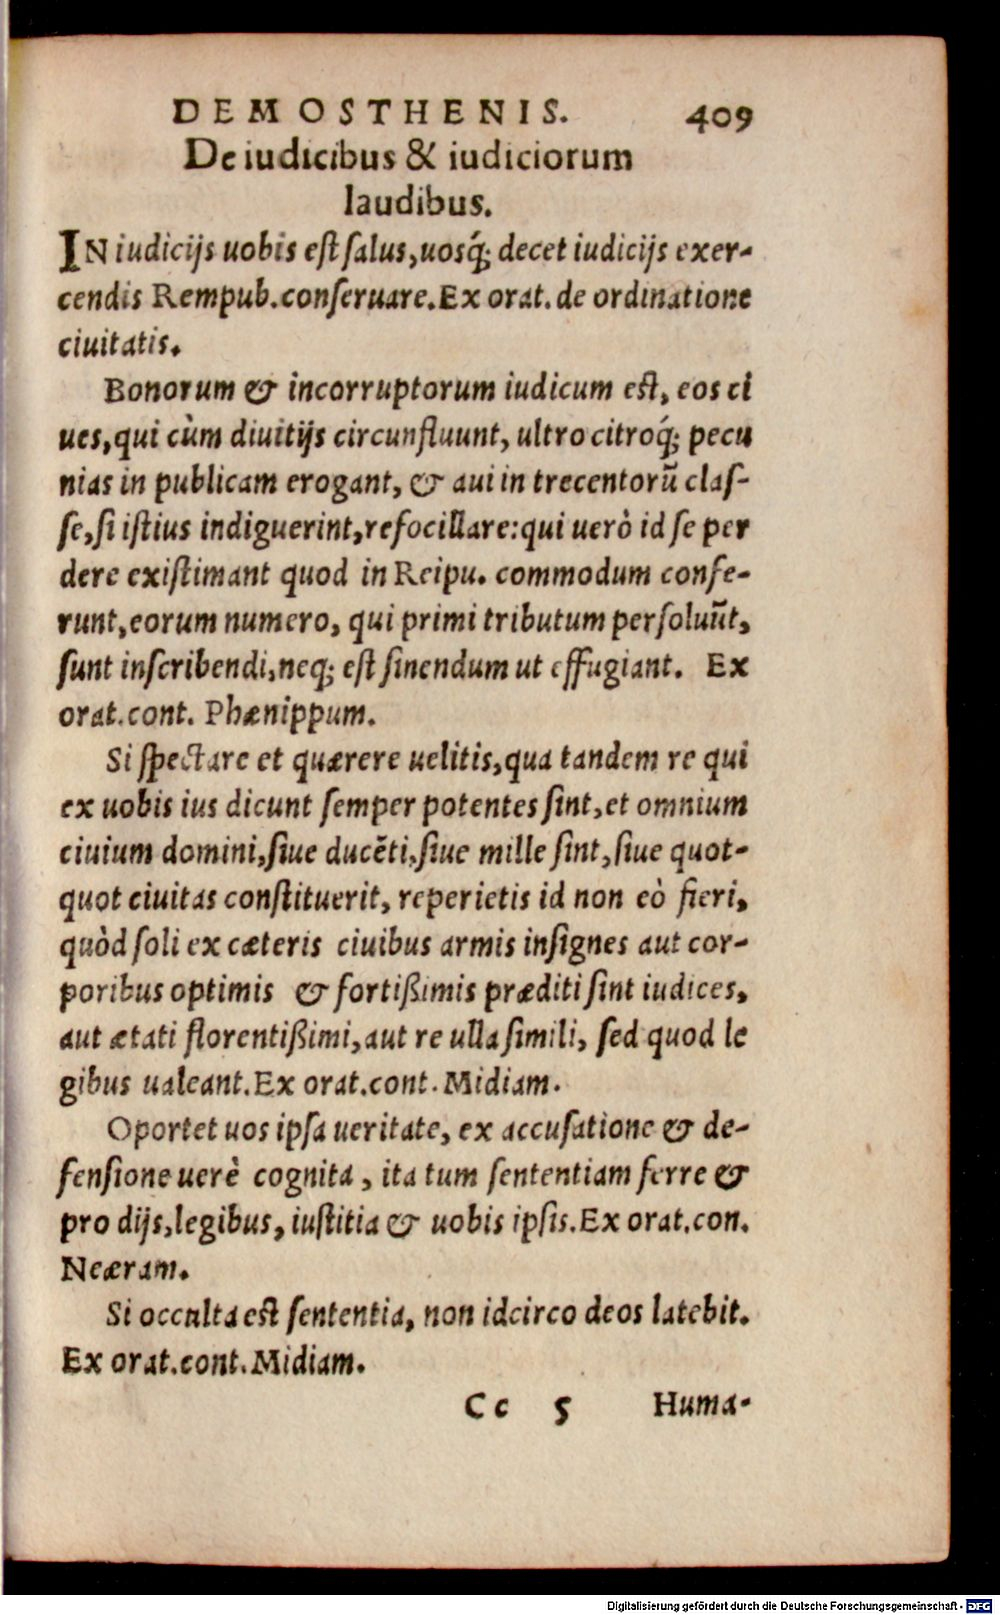 DEMOSTHENIS. 409
De iudicibus & iudiciorum
laudibus.
IN iudicijs uobis est salus, uosq́; decet iudicijs exer-
cendis Rempub. conseruare. Ex orat. de ordinatione
ciuitatis.
Bonorum & incorruptorum iudicum est, eos ci
ues, qui cùm diuitijs circunfluunt, ultro citroq́; pecu
nias in publicam erogant, & aui in trecentorũ clas-
se, si istius indiguerint, refocillare: qui uerò id se per
dere existimant quod in Reipu. commodum confe-
runt, eorum numero, qui primi tributum persoluũt,
sunt inscribendi, neq; est sinendum ut effugiant. Ex
orat. cont. Phænippum.
Si spectare et quærere uelitis, qua tandem re qui
ex uobis ius dicunt semper potentes sint, et omnium
ciuium domini, siue ducẽti, siue mille sint, siue quot-
quot ciuitas constituerit, reperietis id non eò fieri,
quòd soli ex cæteris ciuibus armis insignes aut cor-
poribus optimis & fortißimis præditi sint iudices,
aut ætati florentißimi, aut re ulla simili, sed quod le
gibus ualeant. Ex orat. cont. Midiam.
Oportet uos ipsa ueritate, ex accusatione & de-
fensione uerè cognita, ita tum sententiam ferre &
pro dijs, legibus, iustitia & uobis ipsis. Ex orat. con.
Neæram.
Si occulta est sententia, non idcirco deos latebit.
Ex orat. cont. Midiam.
Cc 5 Huma-
Digitalisierung gefördert durch die Deutsche Forschungsgemeinschaft - DFG